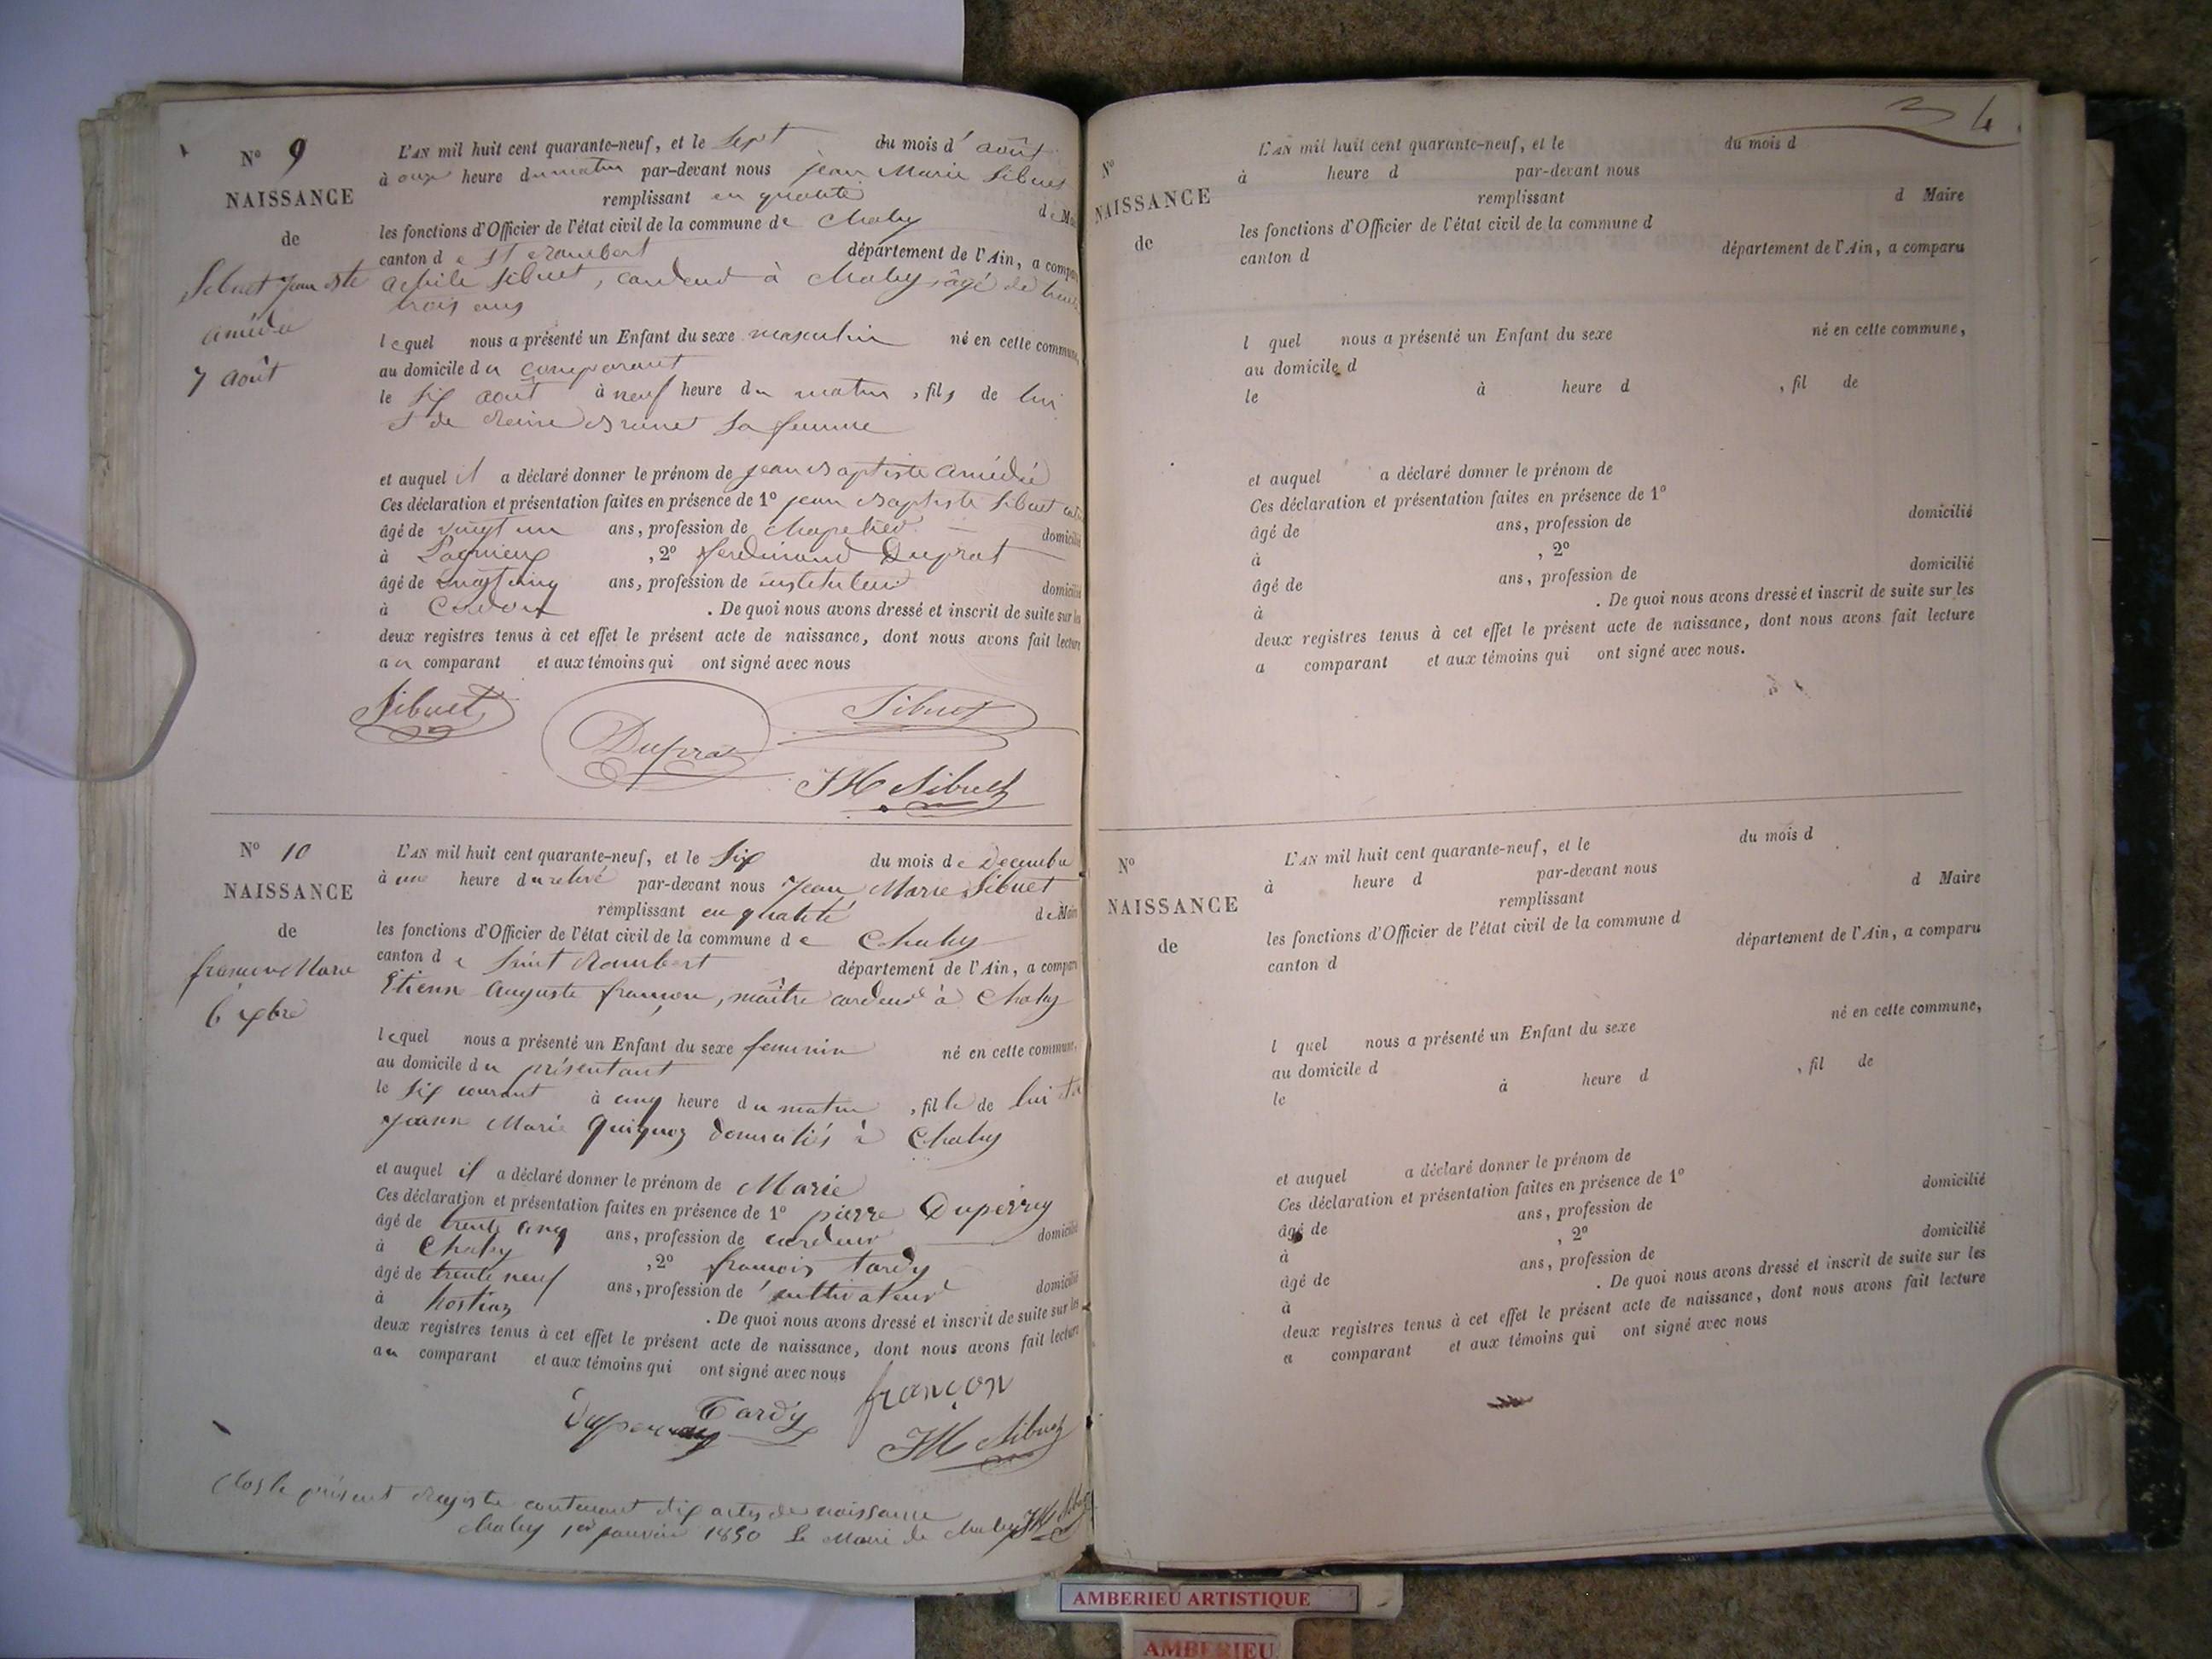 N° 9
NAISSANCE
de
Sibuet Jean Bte
amédée
7 août
L'AN mil huit cent quarante-neuf, et le sept du mois d'août
à onze heure du matin par-devant nous jean Marie Sibuet
remplissant en qualité de Maire
les fonctions d'Officier de l'état civil de la commune de Chaley
canton de St Rambert département de l'Ain, a comparu
achile Sibuet, cardeur à Chaley, âgé de trente
trois ans
lequel nous a présenté un Enfant du sexe masculin né en cette commune,
au domicile du comparant
le six août à neuf heure du matin, fils de lui
et de Reine Brunet sa femme
et auquel il a déclaré donner le prénom de jean Baptiste amédée
Ces déclaration et présentation faites en présence de 1° jean Baptiste Sibuet
âgé de vingt un ans, profession de chapelier domicilié
à Lagnieux, 2° ferdinand Duprat
âgé de ans, profession de instituteur domicilié
à . De quoi nous avons dressé et inscrit de suite sur les
deux registres tenus à cet effet le présent acte de naissance, dont nous avons fait lecture
au comparant et aux témoins qui ont signé avec nous
Sibuet Sibuet
Duprat
JM Sibuet
N° 10
NAISSANCE
de
françon Marie
6 xbre
L'AN mil huit cent quarante-neuf, et le six du mois de Decembre
à une heure du relevé par-devant nous Jean Marie Sibuet
remplissant en qualité de Maire
les fonctions d'Officier de l'état civil de la commune de Chaley
canton de Saint Rambert département de l'Ain, a comparu
Etienne Auguste françon, maître cardeur à Chaley
lequel nous a présenté un Enfant du sexe feminin né en cette commune,
au domicile du présentant
le six courant à cinq heure du matin, fille de lui et de
jeanne Marie Quiquoz domiciliés à Chaley
et auquel il a déclaré donner le prénom de Marie
Ces déclaration et présentation faites en présence de 1° pierre Duperrey
âgé de trente cinq ans, profession de cardeur domicilié
à Chaley, 2° francois tardy
âgé de trente neuf ans, profession de cultivateur domicilié
à hostiaz . De quoi nous avons dressé et inscrit de suite sur les
deux registres tenus à cet effet le présent acte de naissance, dont nous avons fait lecture
au comparant et aux témoins qui ont signé avec nous
françon
Duperrey Tardy
JM Sibuet
Clos le présent Registre contenant dix actes de naissance
Chaley 1er janvier 1850 Le Maire de Chaley JM Sibuet
4
N°
NAISSANCE
de
L'AN mil huit cent quarante-neuf, et le du mois d
à heure d par-devant nous
remplissant d Maire
les fonctions d'Officier de l'état civil de la commune d
canton d département de l'Ain, a comparu
l quel nous a présenté un Enfant du sexe né en cette commune,
au domicile d
le à heure d , fil de
et auquel a déclaré donner le prénom de
Ces déclaration et présentation faites en présence de 1°
âgé de ans, profession de domicilié
à , 2°
âgé de ans, profession de domicilié
à . De quoi nous avons dressé et inscrit de suite sur les
deux registres tenus à cet effet le présent acte de naissance, dont nous avons fait lecture
a comparant et aux témoins qui ont signé avec nous.
N°
NAISSANCE
de
L'AN mil huit cent quarante-neuf, et le du mois d
à heure d par-devant nous
remplissant d Maire
les fonctions d'Officier de l'état civil de la commune d
canton d département de l'Ain, a comparu
l quel nous a présenté un Enfant du sexe né en cette commune,
au domicile d
le à heure d , fil de
et auquel a déclaré donner le prénom de
Ces déclaration et présentation faites en présence de 1°
âgé de ans, profession de domicilié
à , 2°
âgé de ans, profession de domicilié
à . De quoi nous avons dressé et inscrit de suite sur les
deux registres tenus à cet effet le présent acte de naissance, dont nous avons fait lecture
a comparant et aux témoins qui ont signé avec nous
AMBERIEU ARTISTIQUE
AMBERIEU